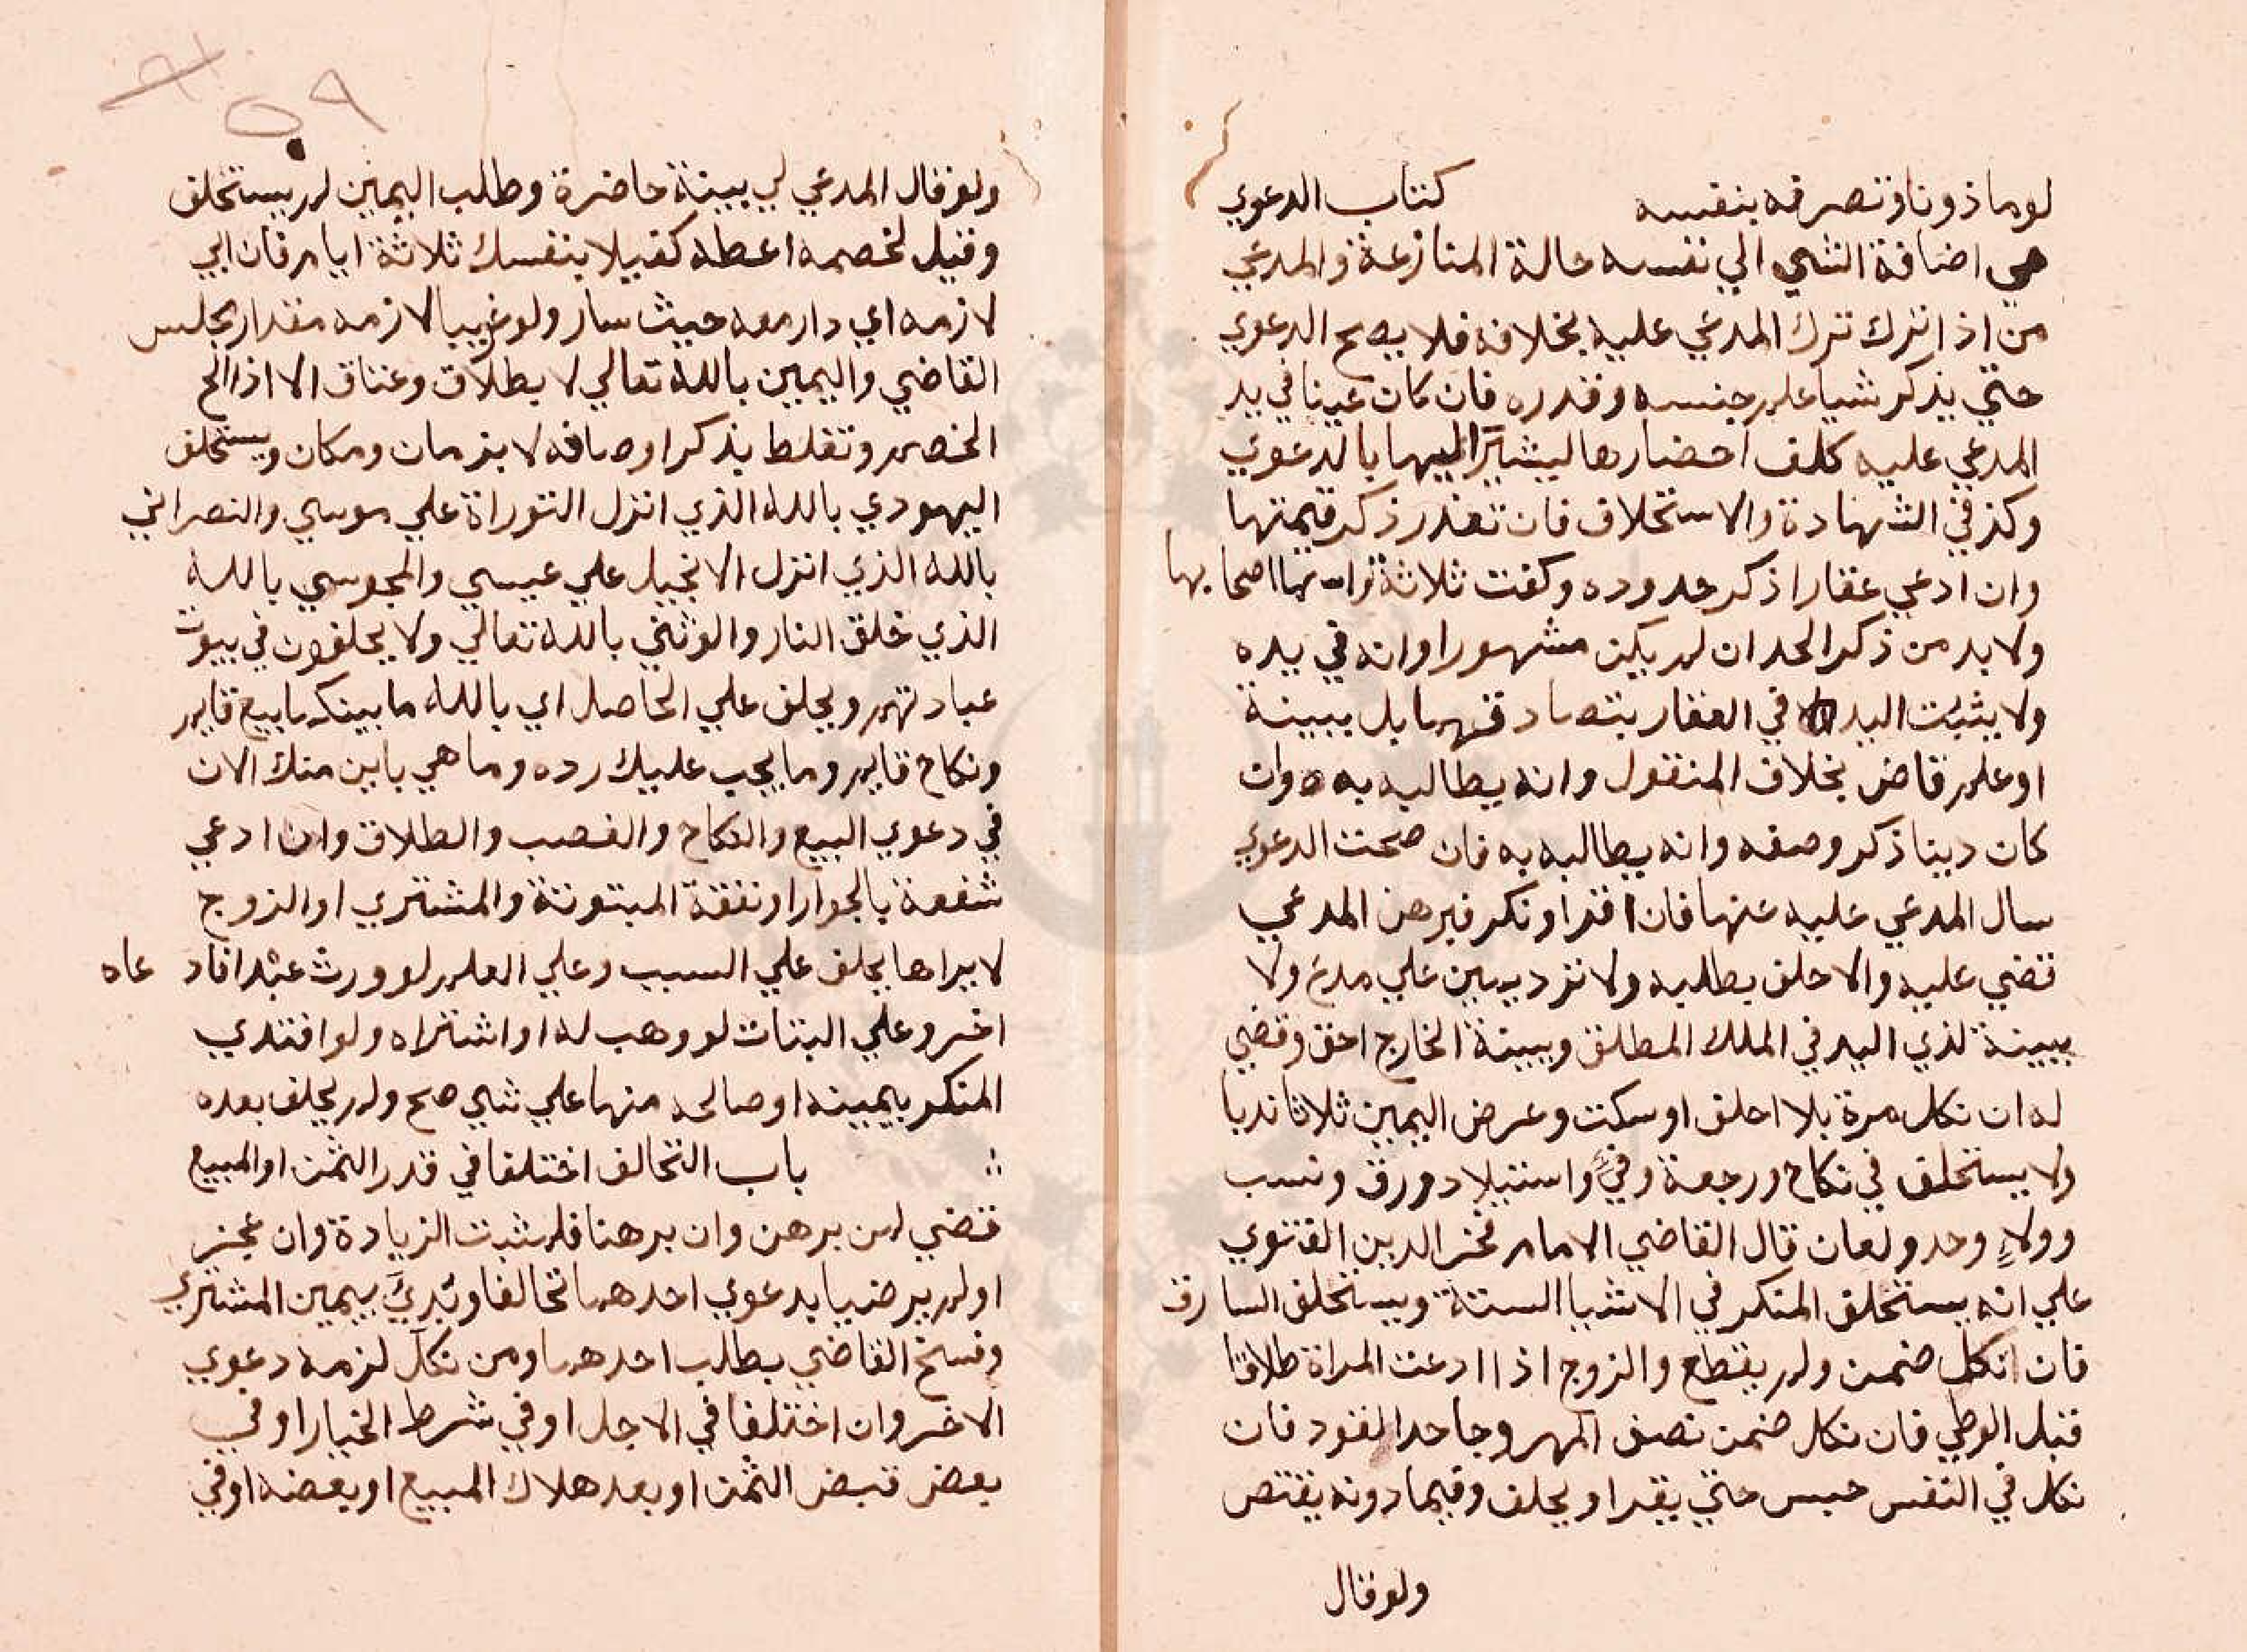 لوماذونا وتصرفه بنفسه كتاب الدعوي
هي اضافة الشي الي نفسه حالة المنازعة والمدعي
من اذا ترك ترك المدعي عليه بخلافه فلا يصح الدعوي
حتي يذكر شيا علم جنسه وقدره فان كان عينا في يد
المدعي عليه كلف احضارها ليشير اليها بالدعوي
وكذ في الشهادة والاستحلاف فان تعذر ذكر قيمتها
وان ادعي عقارا ذكر حدوده وكفت ثلاثة واسما اصحابها
ولا بد من ذكر الحد ان لم يكن مشهورا وانه في يده
ولا يثبت اليد في العقار بتصادقهما بل ببينة
او علم قاض بخلاف المنقول وانه يطالبه به وان
كان دينا ذكر وصفه وانه يطالبه به فان صحت الدعوي
سال المدعي عليه عنها فان اقر او نكر فبرهن المدعي
قضي عليه والا حلف بطلبه ولا ترد يمين علي مدع ولا
ببينة لذي اليد في الملك المطلق وبينة الخارج احق وقضي
له ان نكل مرة بلا احلف او سكت وعرض اليمين ثلاثا ندبا
ولا يستحلف في نكاح ورجعة وفي واستيلاد ورق ونسب
وولاء وحد ولعان قال القاضي الامام فخر الدين الفتوي
علي انه يستحلف المنكر في الاشيا الستة ويستحلف السارق
فان نكل ضمن ولم يقطع والزوج اذا ادعت المراة طلاقا
قبل الوطي فان نكل ضمن نصف المهر وجاحد القود فان
نكل في النفس حبس حتي يقر او يحلف وفيما دونه يقتص
ولو قال
٥٩
ولو قال المدعي لي بينة حاضرة وطلب اليمين لم يستحلف
وقيل لخصمه اعطه كفيلا بنفسك ثلاثة ايام فان ابي
لازمه اي دار معه حيث سار ولو غريبا لازمه مقدار مجلس
القاضي واليمين بالله تعالي لا بطلاق وعتاق الا اذا الح
الخصم وتغلظ بذكر اوصافه لا بزمان ومكان ويستحلف
اليهودي بالله الذي انزل التوراة علي موسي والنصراني
بالله الذي انزل الانجيل علي عيسي والمجوسي بالله
الذي خلق النار والوثني بالله تعالي ولا يحلفون في بيوت
عبادتهم ويحلف علي الحاصل اي بالله ما بينكما بيع قايم
ونكاح قايم وما يجب عليك رده وما هي باين منك الان
في دعوي البيع والنكاح والغصب والطلاق وان ادعي
شفعة بالجوار او نفقة المبتوتة والمشتري او الزوج
لا يراها يحلف علي السبب وعلي العلم لو ورث عبدا فاد عاه
اخر وعلي البتات لو وهب له او اشتراه ولو افتدي
المنكر بيمينه او صالحه منها علي شي صح ولم يحلف بعده
باب التحالف اختلفا في قدر الثمن او المبيع
قضي لمن برهن وان برهنا فلمثبت الزيادة وان عجز
او لم يرضيا بدعوي احدهما تحالفا وبدي بيمين المشتري
وفسخ القاضي بطلب احدهما ومن نكل لزمه دعوي
الاخر وان اختلفا في الاجل او في شرط الخيار او في
بعض قبض الثمن او بعد هلاك المبيع او بعضه او في